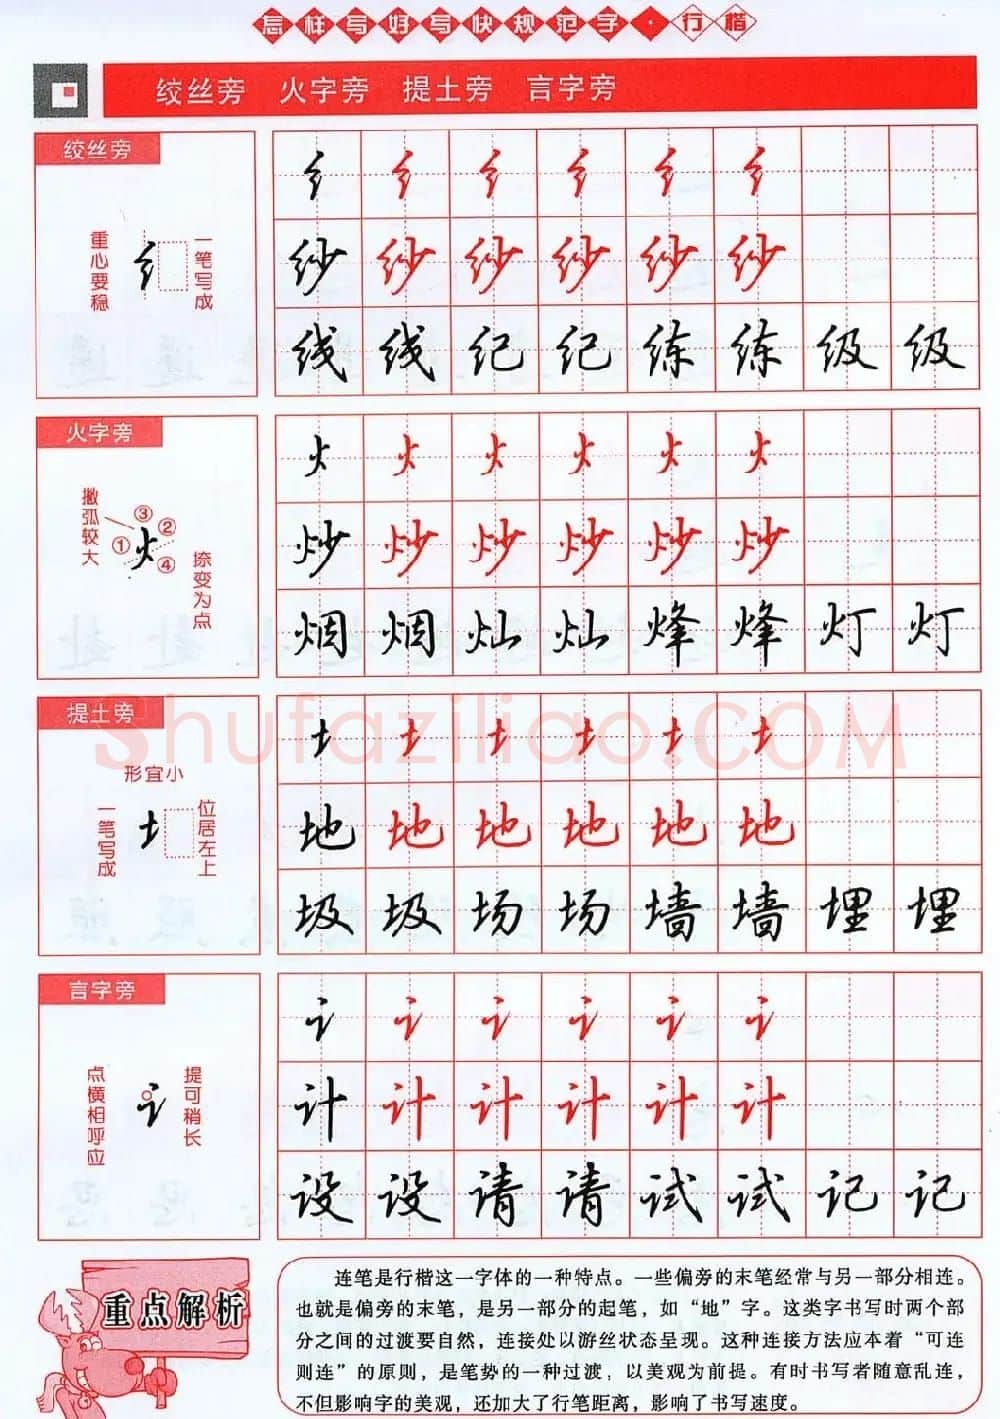 怎样写好写快规范字·行楷
绞丝旁 火字旁 提土旁 言字旁
绞丝旁
重心要稳
纟
一笔写成
纟 纟 纟 纟 纟 纟
纱 纱 纱 纱 纱 纱
线 线 纪 纪 练 练 级 级
火字旁
撇弧较大
① ② ③ ④
火
捺变为点
火 火 火 火 火 火
炒 炒 炒 炒 炒 炒
烟 烟 灿 灿 烽 烽 灯 灯
提土旁
形宜小
一笔写成
土
位居左上
土 土 土 土 土 土
地 地 地 地 地 地
圾 圾 场 场 墙 墙 埋 埋
言字旁
点横相呼应
讠
提可稍长
讠 讠 讠 讠 讠 讠
计 计 计 计 计 计
设 设 请 请 试 试 记 记
shufaziliao.COM
重点解析
连笔是行楷这一字体的一种特点。一些偏旁的末笔经常与另一部分相连。
也就是偏旁的末笔，是另一部分的起笔，如“地”字。这类字书写时两个部
分之间的过渡要自然，连接处以游丝状态呈现。这种连接方法应本着“可连
则连”的原则，是笔势的一种过渡，以美观为前提。有时书写者随意乱连，
不但影响字的美观，还加大了行笔距离，影响了书写速度。